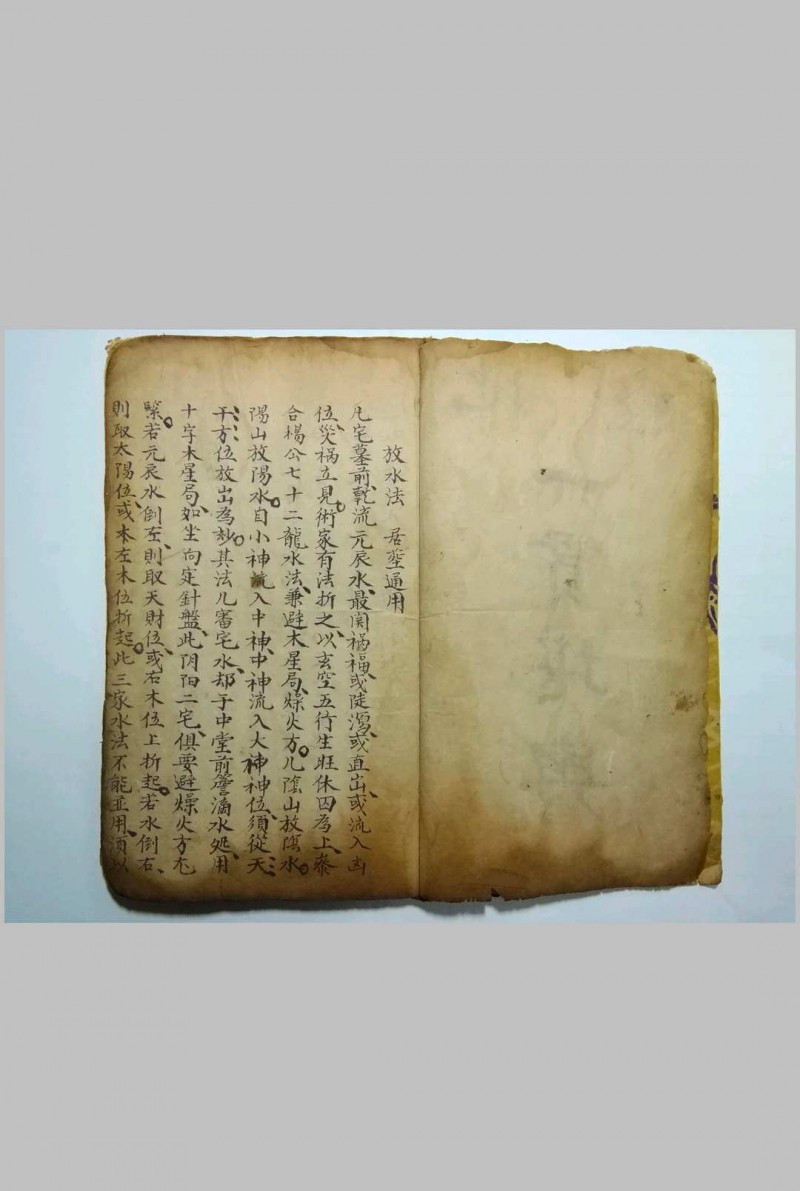 放水法 居塋通用
凡宅墓前、乾流元辰水、最関禍福、或陡瀉、或直出、或流入凶
位、災禍立見。術家有法折之、以玄空五行生旺休囚為上、叅
合楊公七十二龍水法、兼避木星局、燥火方。凡陰山放陰水。
陽山放陽水。自小神流入中神、中神流入大神神位、須從天
干方位放出為妙。其法凡審宅水、却于中堂前簷滴水処、用
十字木星局、如坐向定針盤、此阴阳二宅、俱要避燥火方
緊。若元辰水倒左、則取天財位、或右木位上折起。若水倒右、
則取太陽位、或本左木位折起。此三家水法不能並用、須以